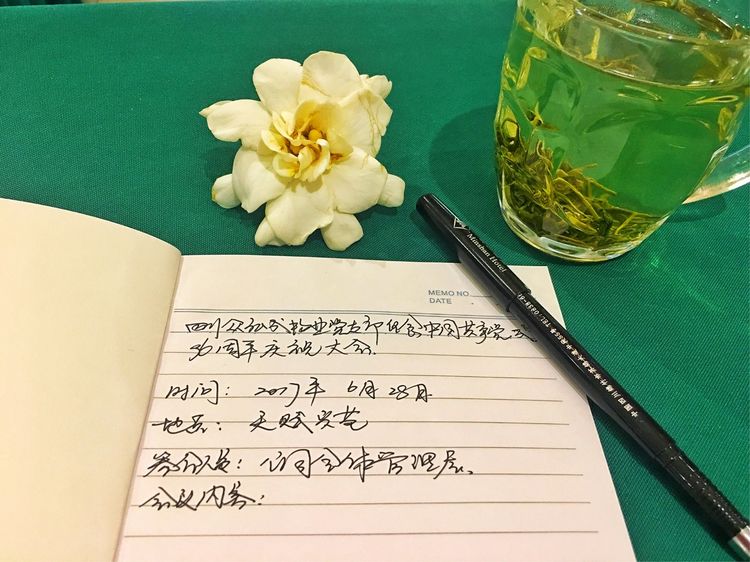 MEMO NO.
DATE
四川众弘盛物业党支部
96周年庆祝大会.
时间: 2017年 6月 28日
地点: 天赋兴苑
参会人员: 公司全体管理层、
会议内容:
Minshan Hotel